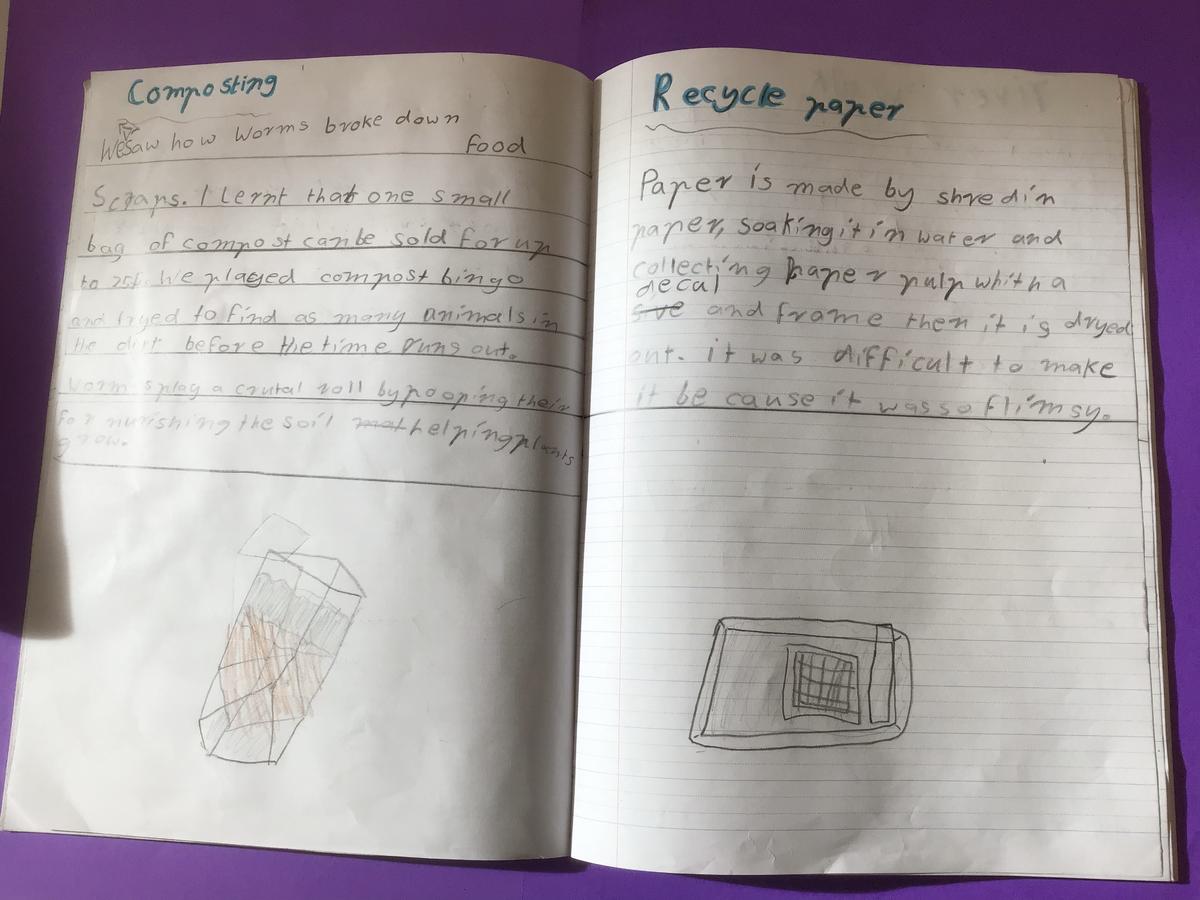 Composting
We saw how worms broke down
food
Scraps. I lernt that one small
bag of compost can be sold for up
to 25£. We played compost bingo
and tryed to find as many animals in
the dirt before the time runs out.
Worms play a crutal roll by pooping their
for nurishing the soil helping plants
grow.
Recycle paper
Paper is made by shredin
paper, soaking it in water and
collecting paper pulp whith a
decal
sive and frame then it is dryed
out. it was difficult to make
it be cause it was so flimsy.